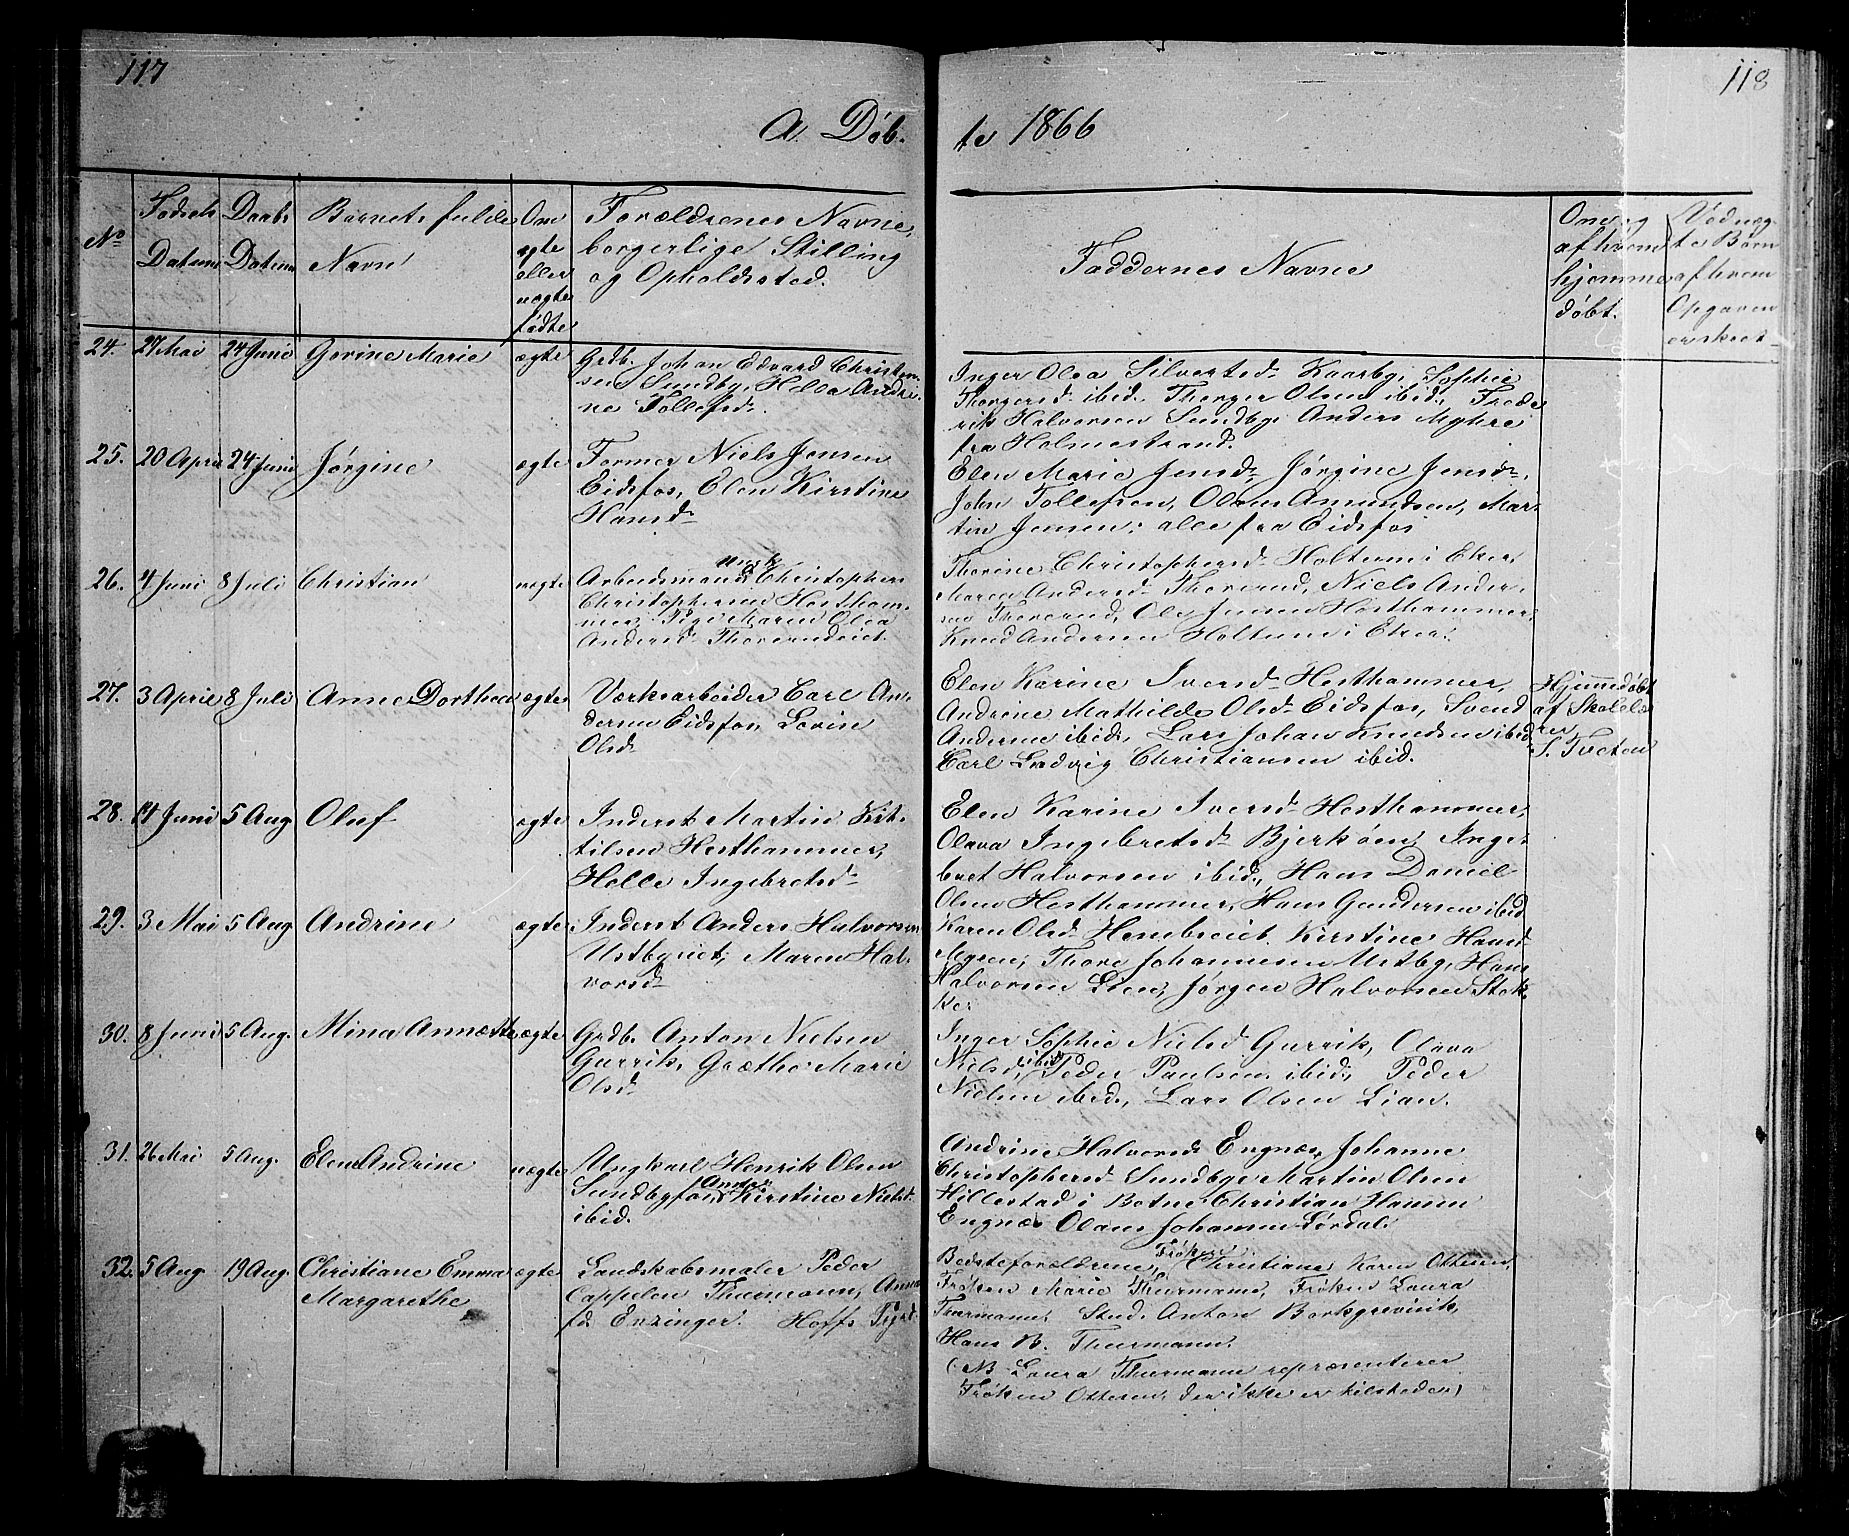 117
118
A. Døb-
te 1866
No
Fødsels Datum
Daabs Datum
Barnets fulde Navn
Om ægte eller uægte fødte
Forældrenes Navne, borgerlige Stilling og Opholdssted.
Faddernes Navne
Om og af hvem hjemmedøbt.
Ved uægte Børn af hvem Opgaven er skeet
24. 27 Mai 24 Juni Gorine Marie ægte
Grdb. Johan Edvard Christen-
sen Sundby, Helle Andri-
ne Tollefsd.
Inger Olea Silvertsd. Kaarby, Sophie
Thorgersd. ibid. Thorger Olsen ibid., Frede
rik Halvorsen Sundby. Anders Myhre
fra Holmestrand.
25. 20 April 24 Juni Jørgine ægte
Former Niels Jensen
Eidsfos, Elen Kirstine
Hansd.
Elen Marie Jensd. Jørgine Jensd.,
John Tollefsen, Olaus Amundsen, Mar-
tin Jensen; alle fra Eidsfos
26. 4 Juni 8 Juli Christian uægte
Arbeidsmand ungk Christopher
Christophersen Hestham-
mer, Pige Maren Olea
Andersd. Thorerudeiet.
Thorine Christophersd. Holtum i Eker,
Maren Andersd. Thorerud, Niels Ander-
sen Thorerud, Ole Jensen Hesthammer,
Knud Andersen Holtum i Eker.
27. 3 April 8 Juli Anne Dorthea ægte
Værksarbeider Carl An-
dersen Eidsfos, Lovise
Olsd.
Elen Karine Iversd. Hesthammer,
Andrine Mathilde Olsd. Eidsfos, Svend
Andersen ibid., Lars Johan Knudsen ibid.
Carl Ludvig Christiansen ibid.
Hjemmedøbt
af Skolelæ
rer
S. Tveten
28. 14 Juni 5 Aug Oluf ægte
Inderst Martin Kit-
tilsen Hesthammer,
Helle Ingebretsd.
Elen Karine Iversd. Hesthammer,
Olava Ingebretsd. Bjerkøen, Inge-
bret Halvorsen ibid., Hans Daniel
Olsen Hesthammer, Hans Gundersen ibid
29. 3 Mai 5 Aug Andrine ægte
Inderst Anders Halvorsen
Ustbyeiet, Maren Hal-
vorsd.
Karen Olsd. Hembreeiet, Kirstine Hansd.
Myren, Thore Johannesen Ustby, Hans
Halvorsen Lien, Jørgen Halvorsen Stok-
ke.
30. 8 Juni 5 Aug. Mina Annette ægte
Grdb. Anton Nielsen
Gurrik, Græthe Marie
Olsd.
Inger Sophie Nielsd Gurrik, Olava
Nielsd. ibid Peder Paulsen ibid., Peder
Nielsen ibid., Lars Olsen Lian.
31. 26 Mai 5 Aug. Elen Andrine uægte
Ungkarl Henrik Olsen
Sundbyfos Anne Kirstine Nielsd.
ibid.
Andrine Halvorsd. Engnæs, Johanne
Christophersd. Sundbye Martin Olsen
Hillestad i Botne Christian Hansen
Engnæs Olaus Johansen Lørdal.
32. 5 Aug 19 Aug. Christiane Emma
Margarethe ægte
Landskabsmaler Peder
Cappelen Thurmann, Anna
fd. Enzinger. Hoffs Prgd.
Bedsteforældrene, Frøken Christiane Karen Ottesen,
Frøken Marie Thurmann, Frøken Laura
Thurmann, Stud. Anton Borkgrevink,
Hans B. Thurmann.
(NB Laura Thurmann repræsenterer
Frøken Ottesen, der ikke er tilstede.)